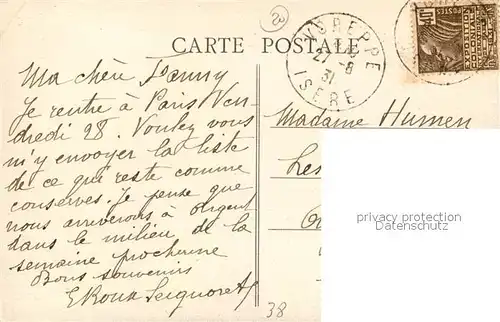 20
CARTE POSTALE
VOREPPE
27 -8
31
ISERE
POSTES
40c
Ma chère Fanny
Je rentre à Paris Ven-
dredi 28. Voulez vous
m'y envoyer la liste
de ce qui reste comme
conserves. Je pense que
nous arriverons à
dans le milieu de la
semaine prochaine
Bons souvenirs
E Roux Seignoret
Madame Humen
Les
privacy protection
Datenschutz
38